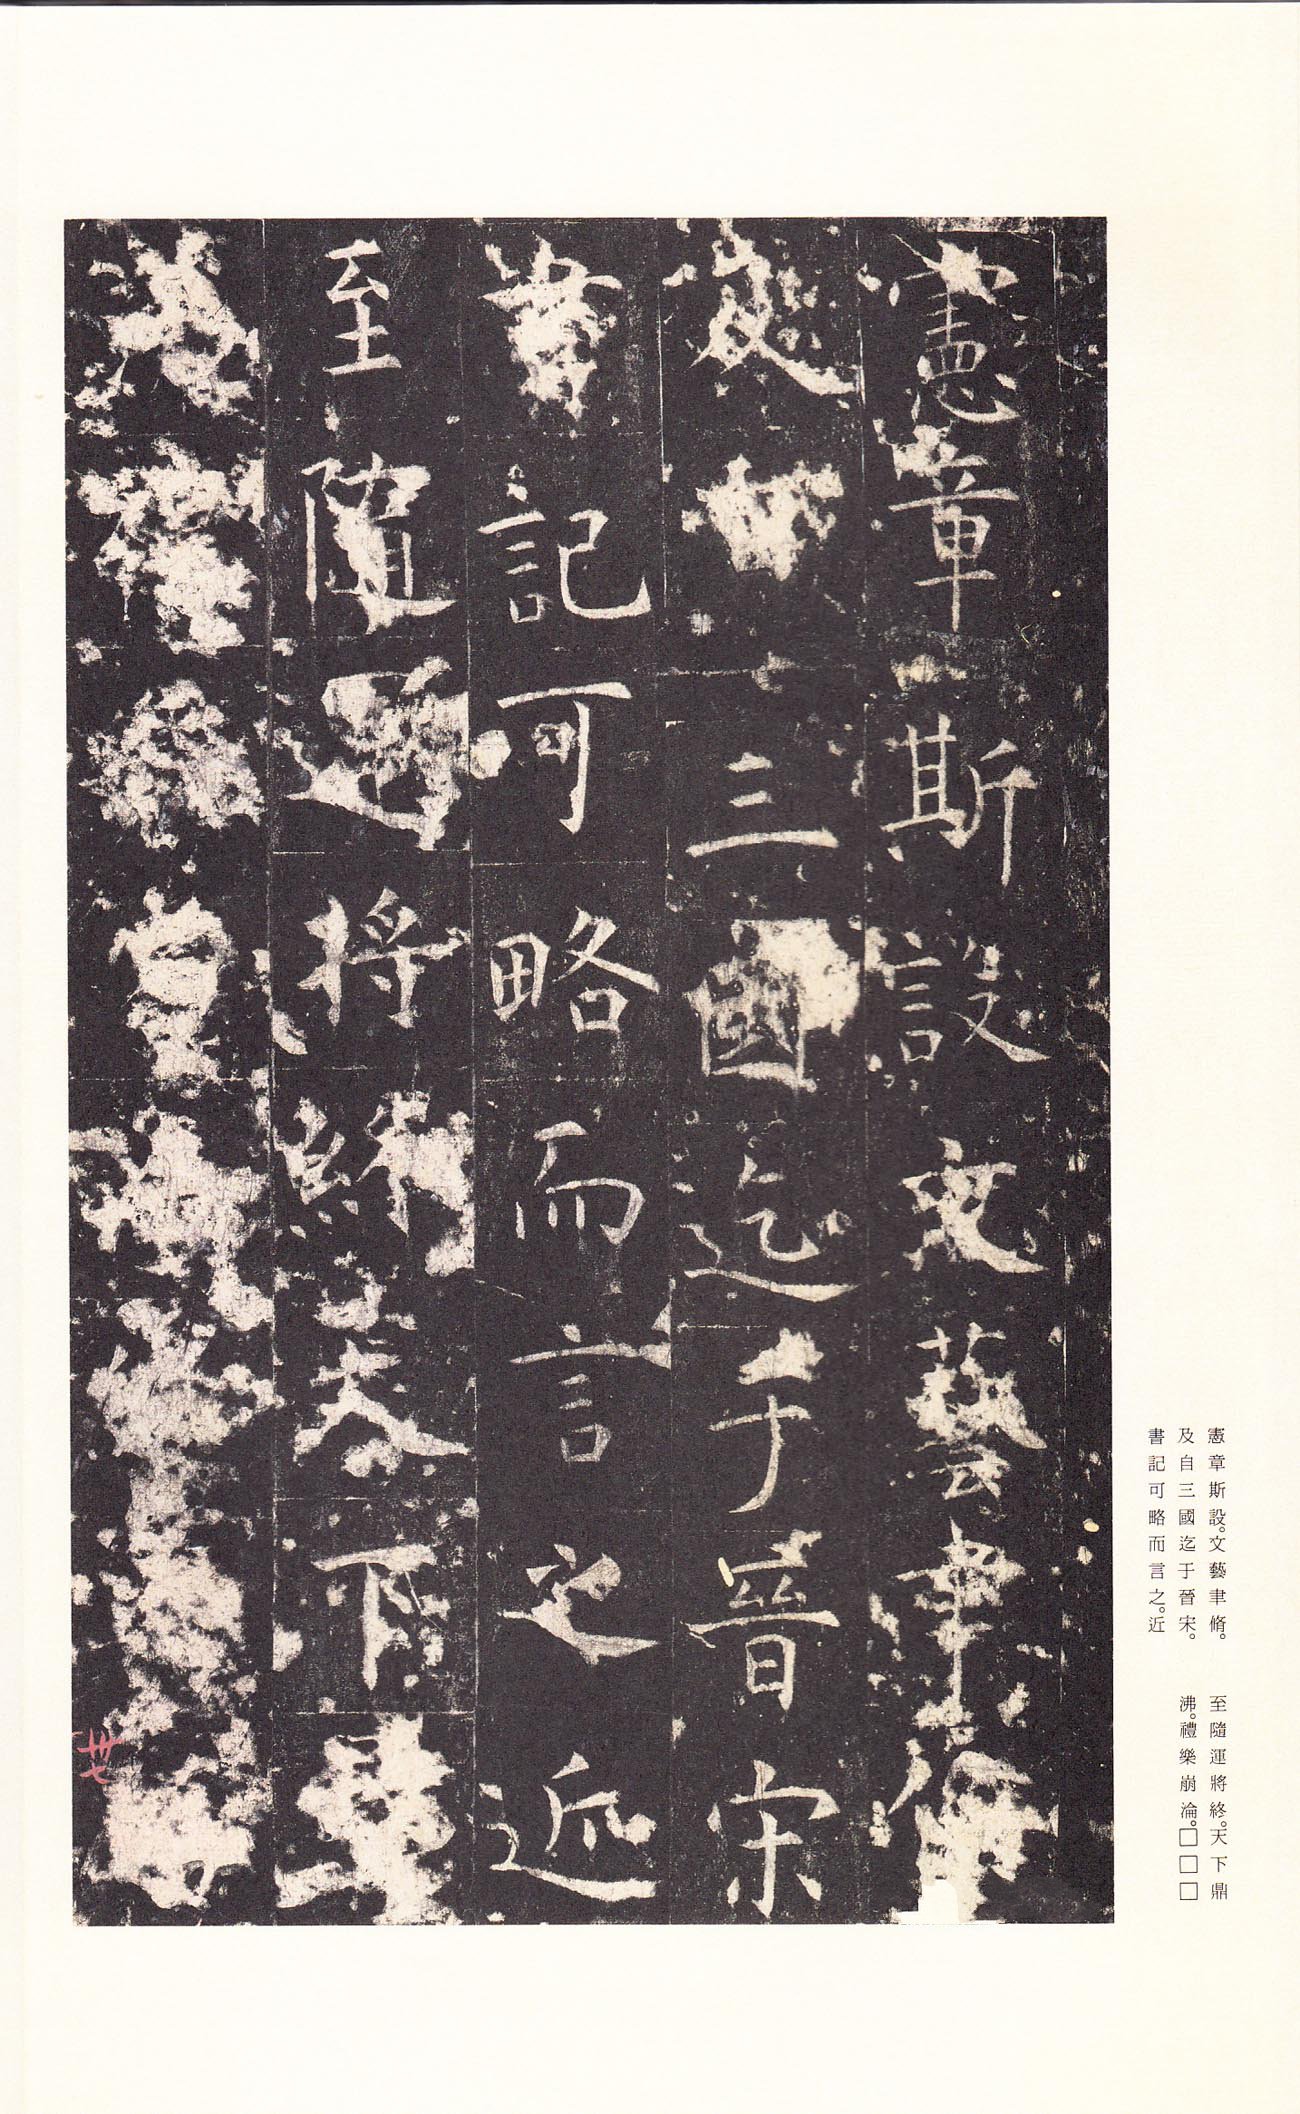 憲章斯設文藝聿脩
及自三國迄于晉宋
書記可略而言之近
至隨運將終天下鼎
卅七
憲章斯設。文藝聿脩。
及自三國迄于晉宋。
書記可略而言之。近
至隨運將終。天下鼎
沸。禮樂崩淪。□□□